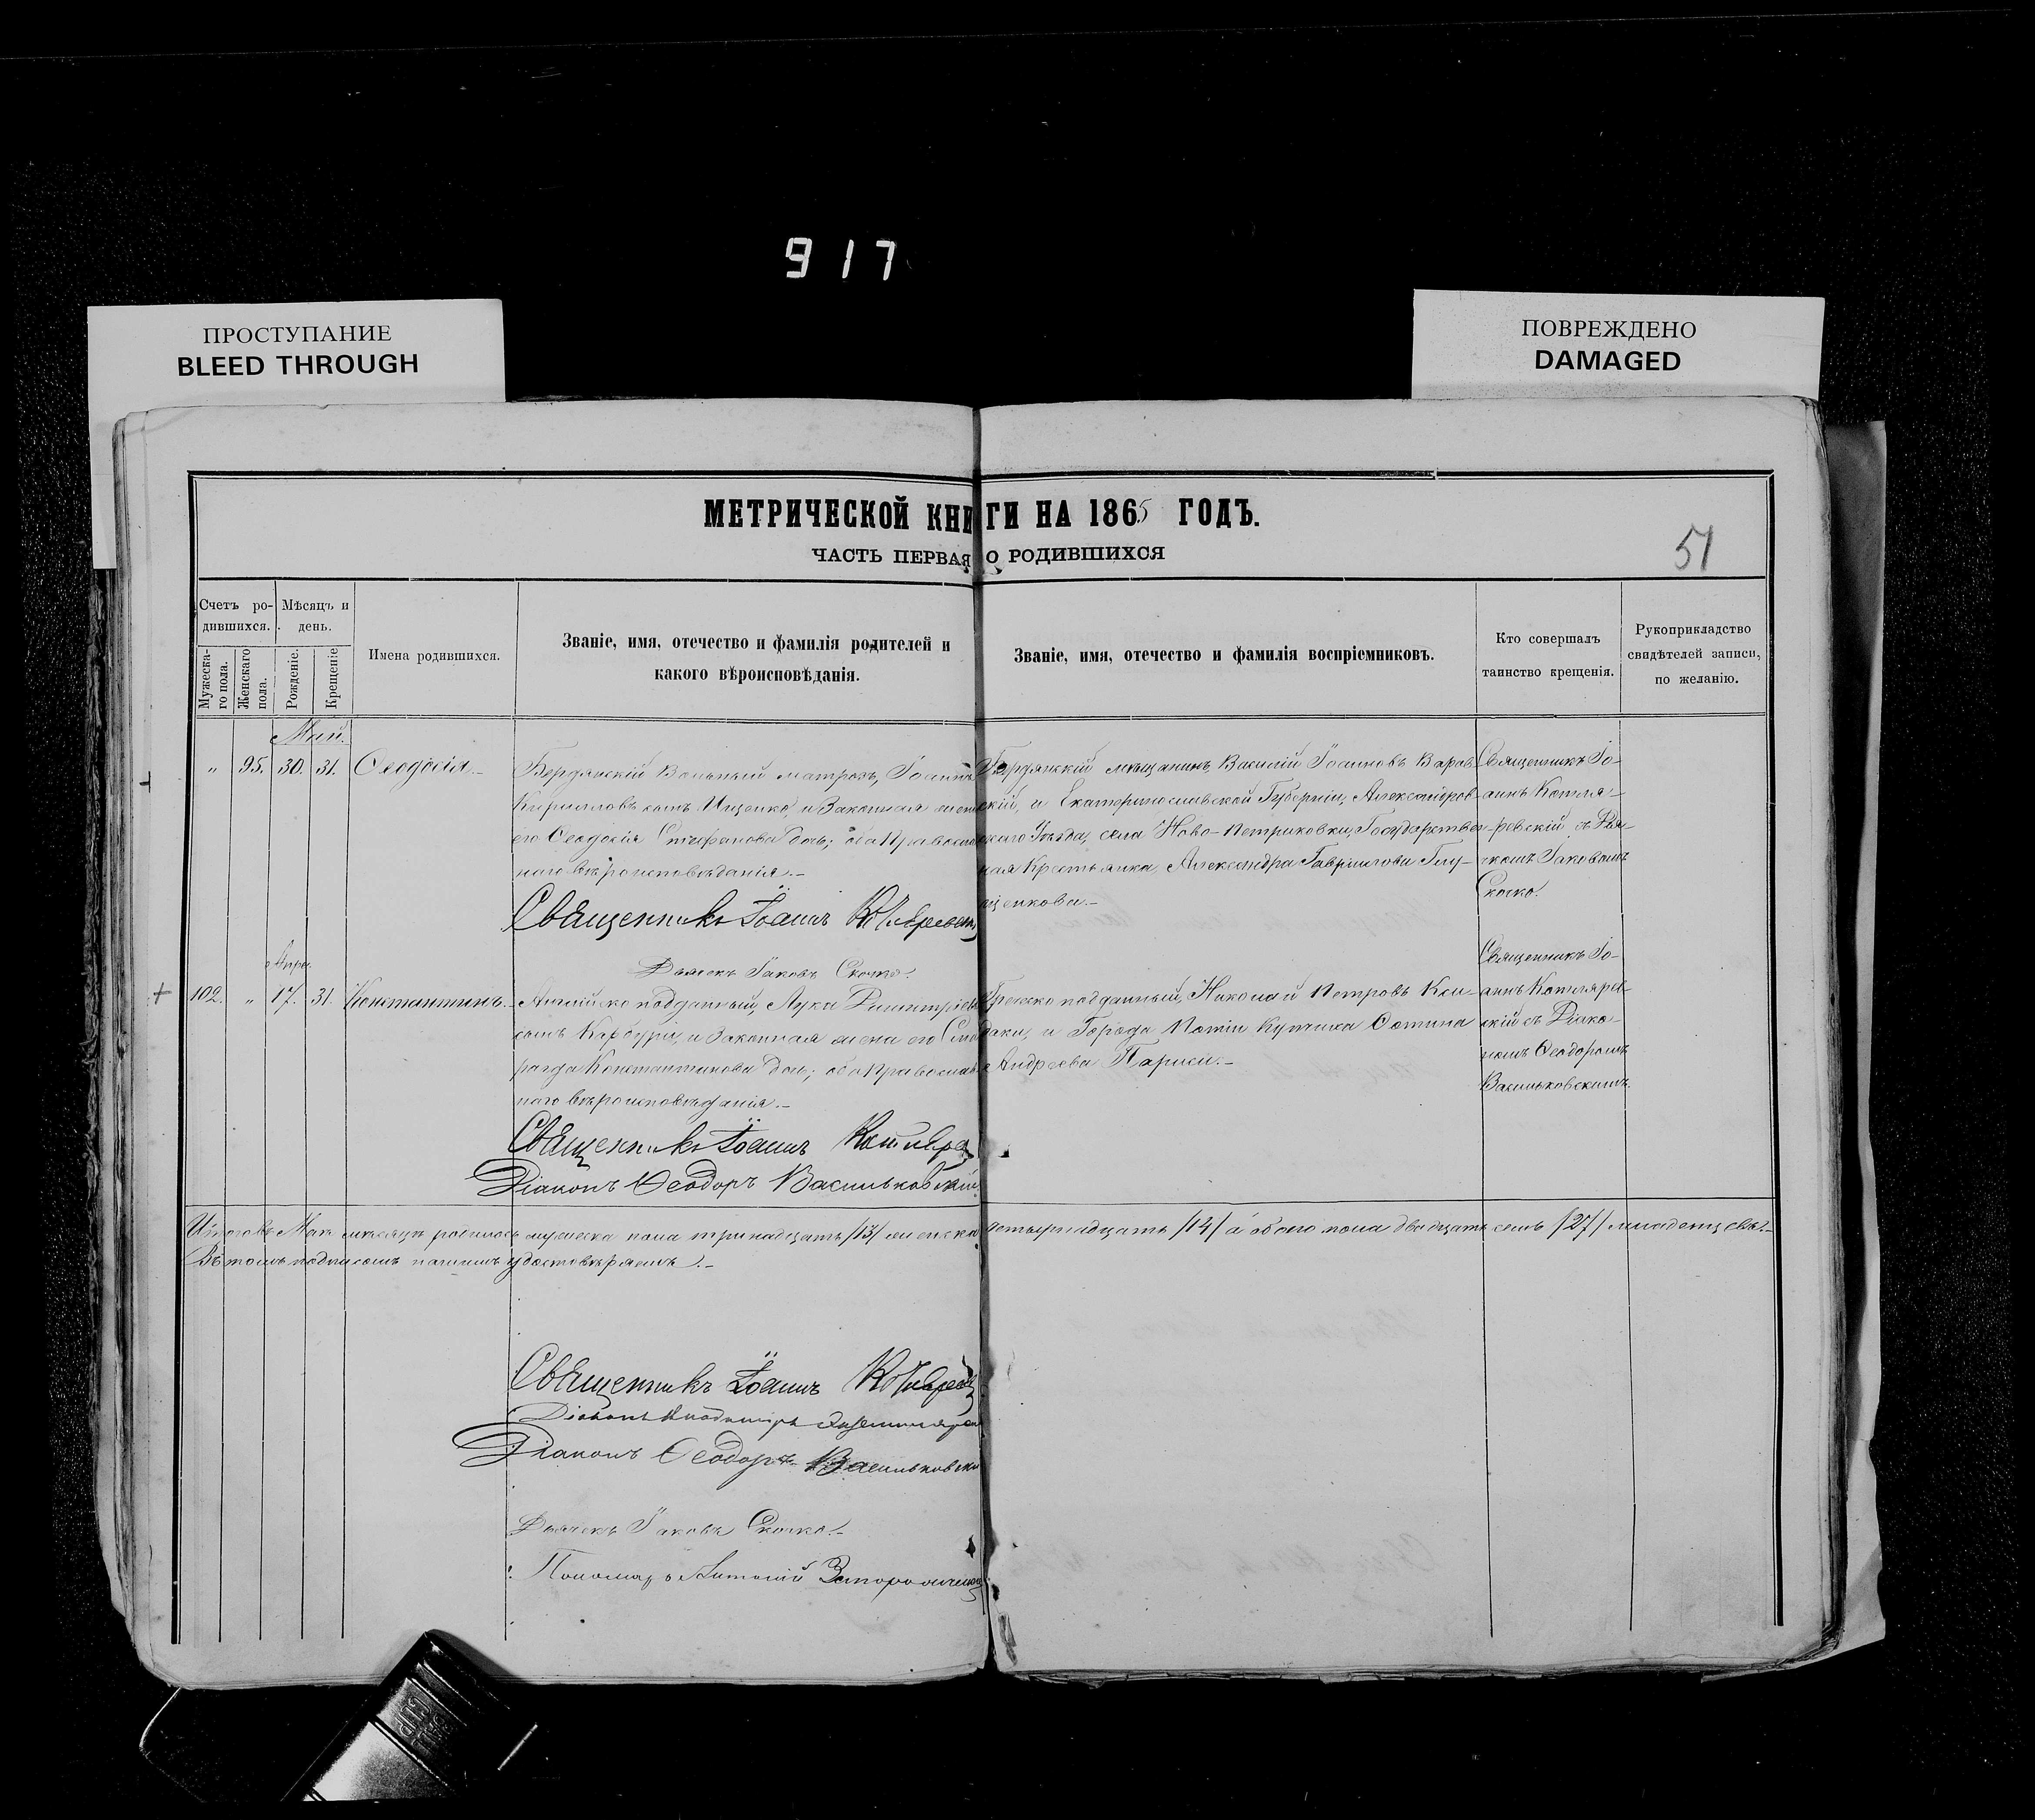 917
ПРОСТУПАНИЕ
BLEED THROUGH
ПОВРЕЖДЕНО
DAMAGED
МЕТРИЧЕСКОЙ КНИГИ НА 1865 ГОДЪ.
ЧАСТЬ ПЕРВАЯ О РОДИВШИХСЯ
51
Счетъ ро-
дившихся.
Мѣсяцъ и
день.
Мужеска-
го пола.
Женскаго
пола.
Рожденіе.
Крещеніе
Имена родившихся.
Званіе, имя, отечество и фамилія родителей и
какого вѣроисповѣданія.
Званіе, имя, отечество и фамилія воспріемниковъ.
Кто совершалъ
таинство крещенія.
Рукоприкладство
свидѣтелей записи,
по желанію.
Май.
" 95. 30. 31. Ѳеодосія.-
Бердянскій Вольный матрозъ, Іоаннъ
Кирилловъ сынъ Ищенко, и Законная жена
его Ѳеодосія Стефанова дочь; оба Православ
наго вѣроисповѣданія.-
Священникъ Іоаннъ
Дьячекъ Іаковъ Скочко.
Бердянскій мѣщанинъ, Василій Іоанновъ Варав
скій, и Екатеринославской Губерніи, Александров-
скаго Уѣзда, села Ново-Петриковки, Государствен-
ная Крестьянка, Александра Гавріилова Глу-
щенкова.-
Священникъ Іо-
аннъ Котля-
ревскій съ Дья-
чкомъ Іаковомъ
Скочко.
Апрѣ.
102. " 17. 31. Константинъ.-
Англійско подданный, Лука Димитріевъ
сынъ Карбури, и Законная жена его Сма
рагда Константинова дочь; оба Православ
наго вѣроисповѣданія.-
Священникъ Іоаннъ
Діаконъ Ѳеодоръ Васильковскій
Грекско подданный, Николай Петровъ
и Города Купчиха
Андреева
Священникъ Іо-
аннъ Котлярев-
скій съ Діако-
номъ Ѳеодоромъ
Васильковскимъ.
Итого въ Маѣ мѣсяцѣ родилось мужеска пола тринадцать /13/ женска четырнадцать /14/ а обоего пола двадцать семь /27/ младенцевъ.-
Въ томъ подписомъ нашимъ удостовѣряемъ.-
Священникъ Іоаннъ
Діаконъ Владиміръ
Діаконъ Ѳеодоръ Васильковскі
Дьячекъ Іаковъ Скочко.-
Пономарь Антоній